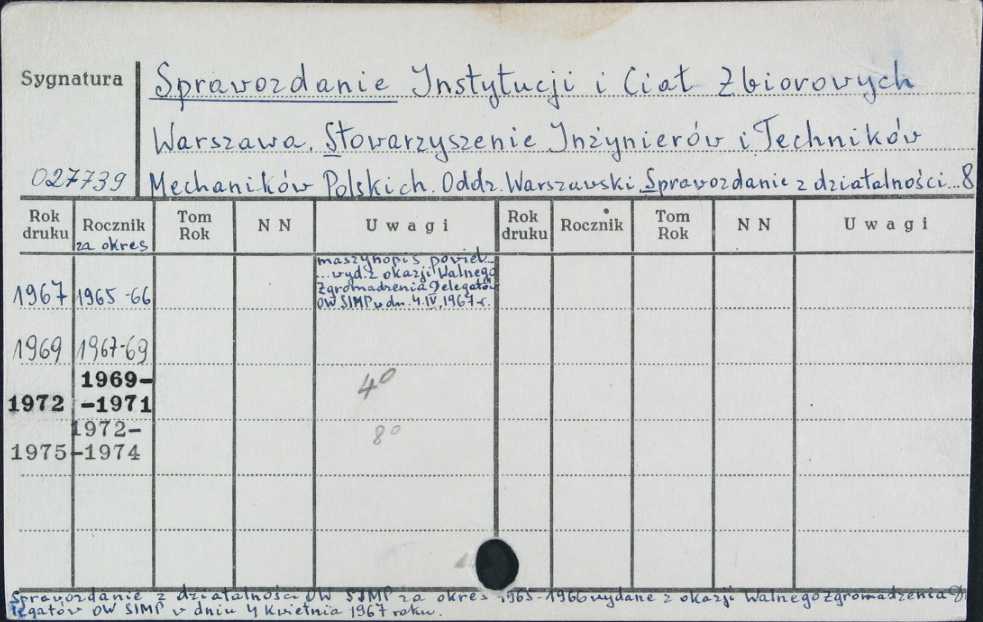 Sygnatura Sprawozdanie Instytucji i Ciał Zbiorowych
Warszawa. Stowarzyszenie Inżynierów i Techników
027739 Mechaników Polskich. Oddz. Warszawski. Sprawozdanie z działalności...8
Rok druku Rocznik za okres Tom Rok NN Uwagi Rok druku Rocznik Tom Rok NN Uwagi
maszynopis powiel.
...wyd. z okazji Walnego
Zgromadzenia Delegatów
1967 1965-66 OW SIMP w dn. 4.IV.1967 r.
1969 1967-69
1969-
4º
1972 -1971
1972-
8º
1975 -1974
Sprawozdanie z działalności OW SIMP za okres 1965-1966 wydane z okazji Walnego Zgromadzenia D
legatów OW SIMP w dniu 4 kwietnia 1967 roku.